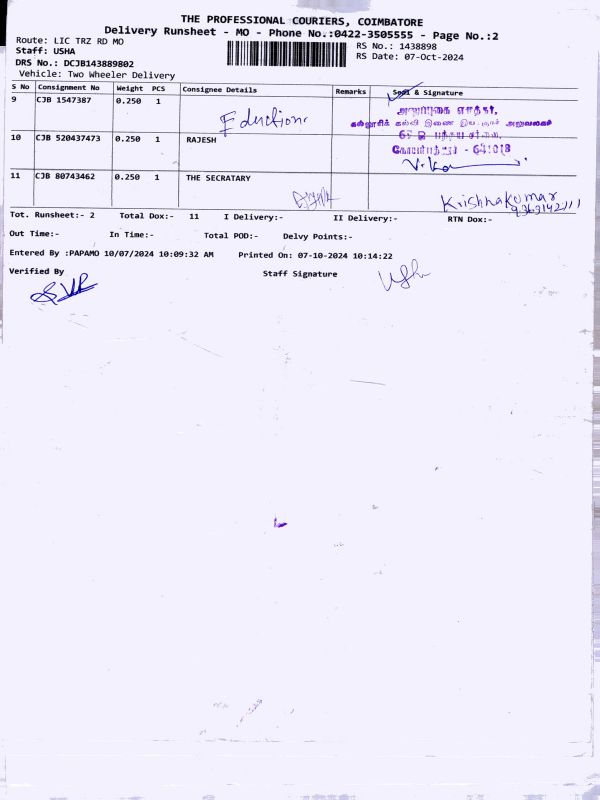 THE PROFESSIONAL COURIERS, COIMBATORE
Delivery Runsheet - MO - Phone No.:0422-3505555 - Page No.:2
Route: LIC TRZ RD MO
RS No.: 1438898
Staff: USHA
RS Date: 07-Oct-2024
DRS No.: DCJB143889802
Vehicle: Two Wheeler Delivery
S No Consignment No Weight PCS Consignee Details Remarks Seal & Signature
9 CJB 1547387 0.250 1
கல்லூரிக் கல்வி இணை இயக்குநர் அலுவலகம்
கோயம்புத்தூர் - 641018
10 CJB 520437473 0.250 1 RAJESH
11 CJB 80743462 0.250 1 THE SECRATARY
Krishnakumar
Tot. Runsheet:- 2 Total Dox:- 11 I Delivery:- II Delivery:- RTN Dox:-
Out Time:- In Time:- Total POD:- Delvy Points:-
Entered By :PAPAMO 10/07/2024 10:09:32 AM Printed On: 07-10-2024 10:14:22
Verified By Staff Signature